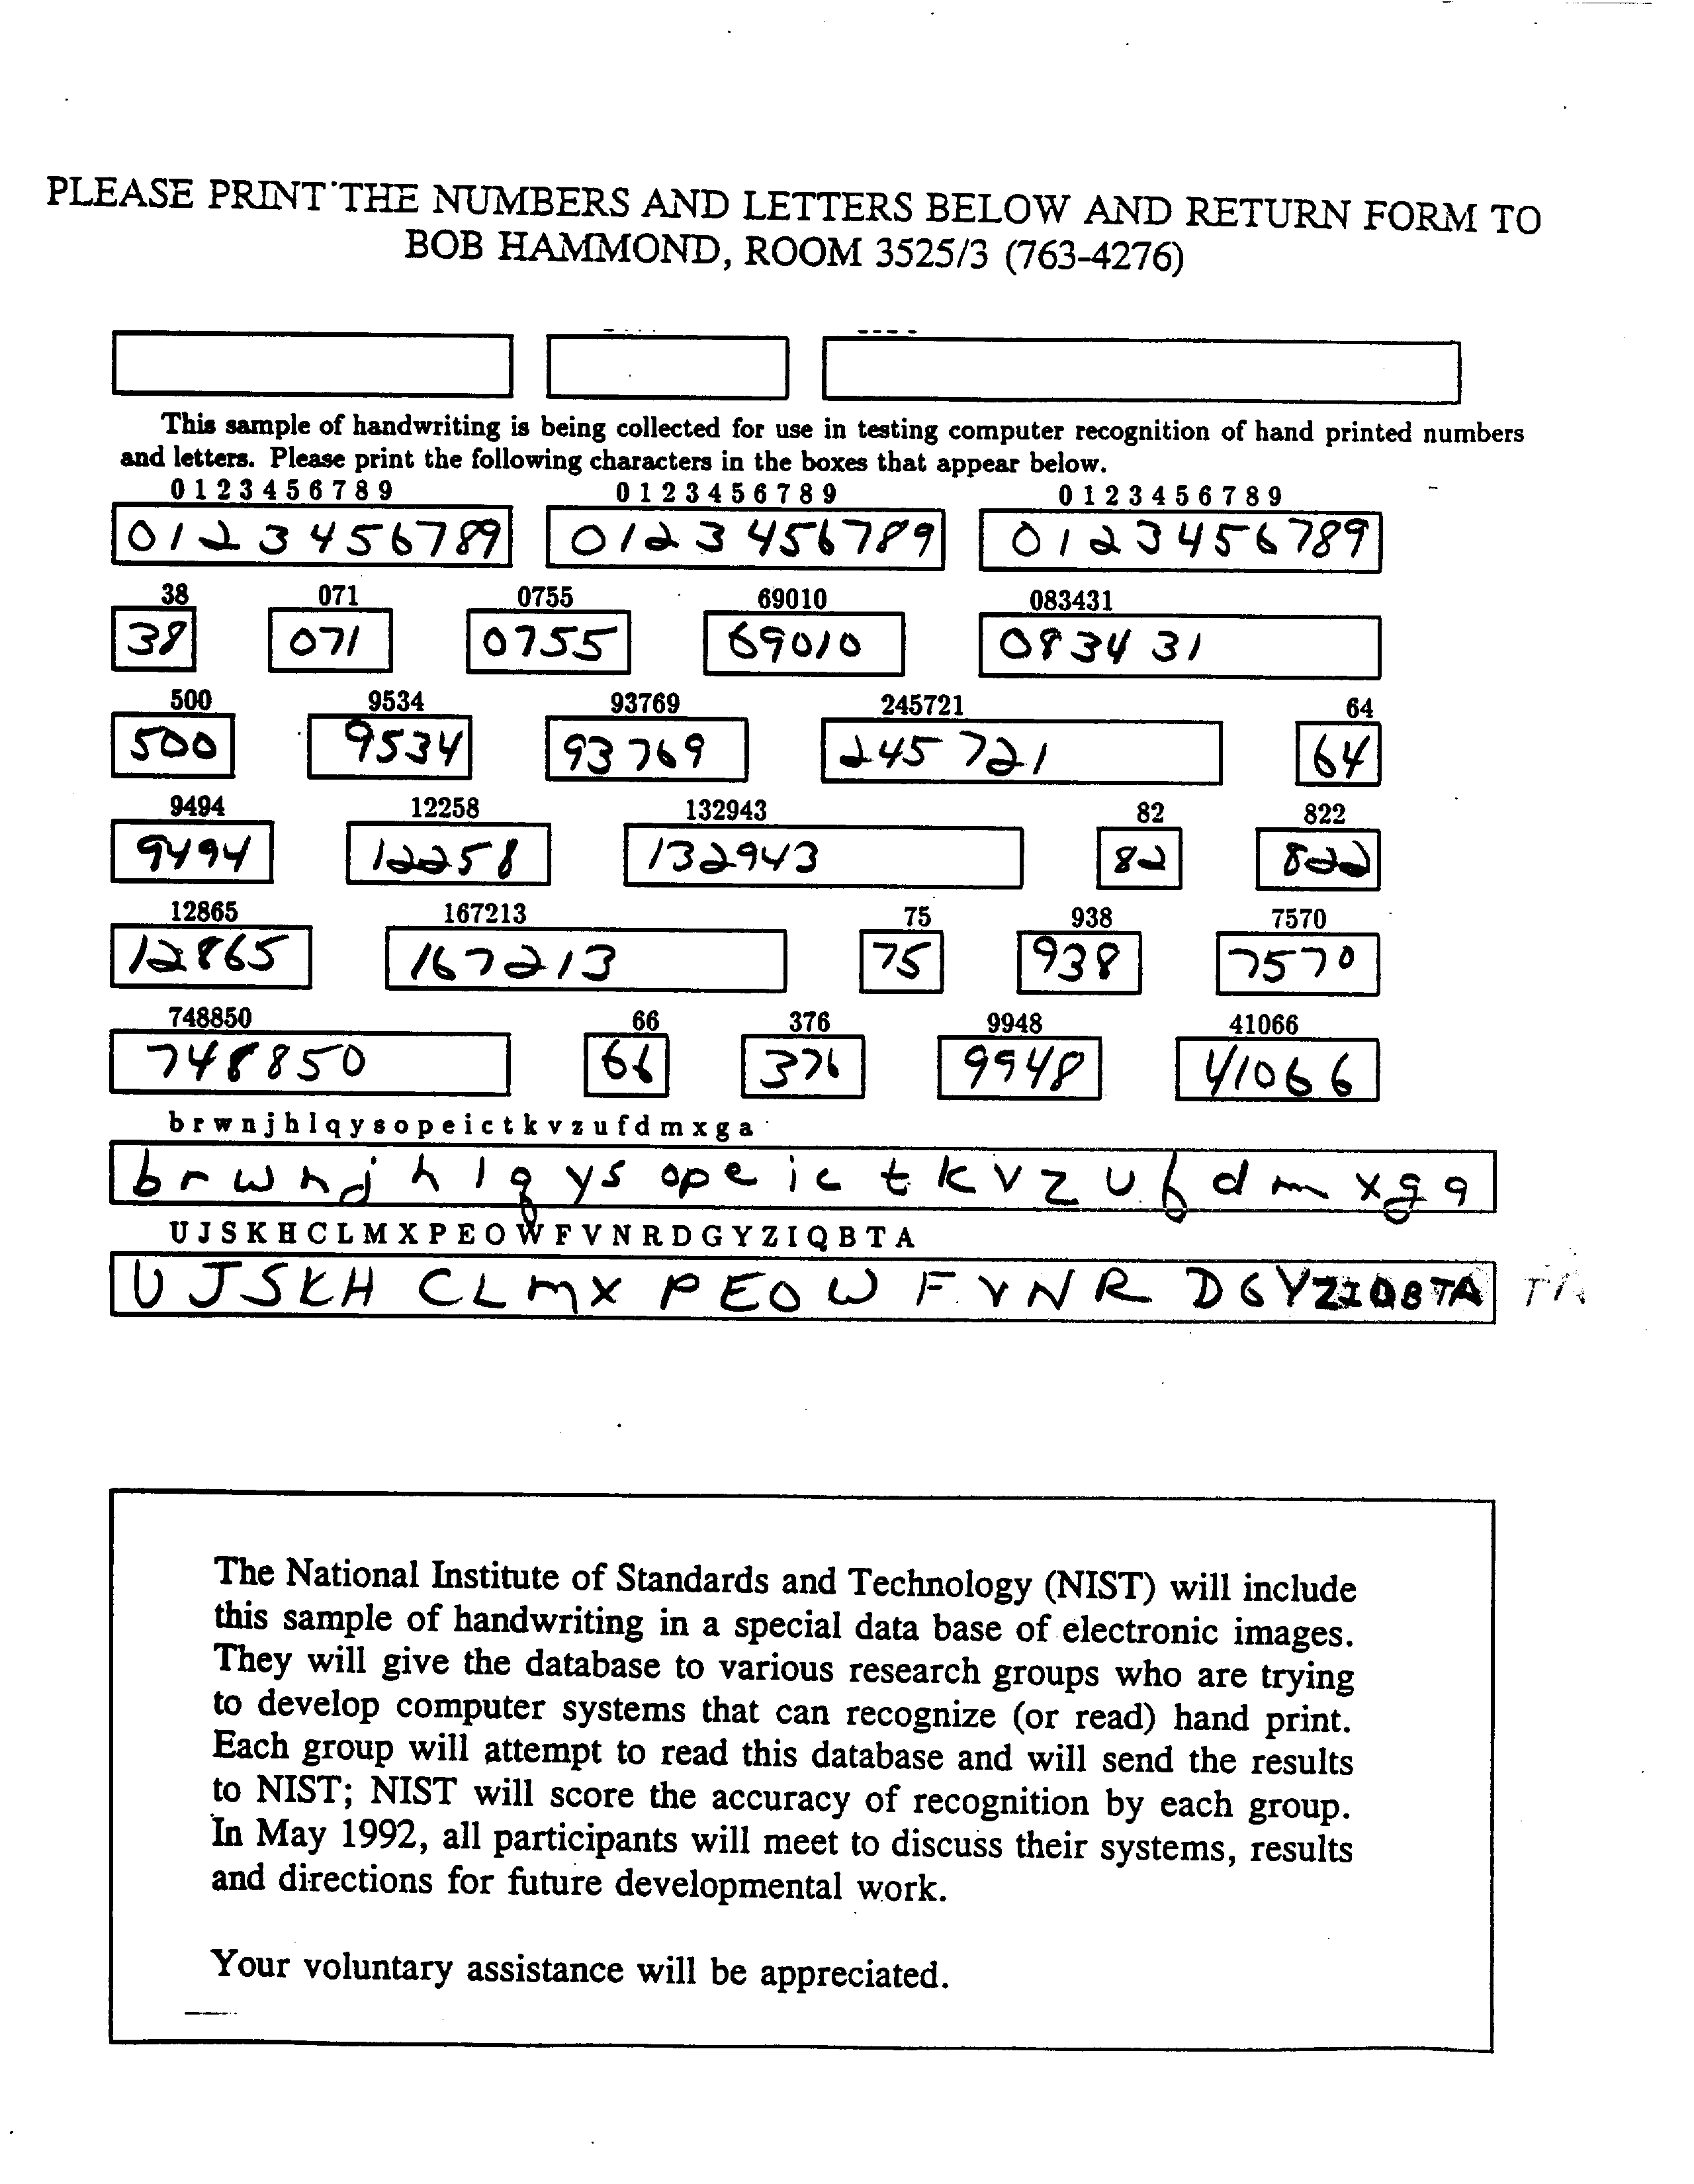 PLEASE PRINT THE NUMBERS AND LETTERS BELOW AND RETURN FORM TO
BOB HAMMOND, ROOM 3525/3 (763-4276)
This sample of handwriting is being collected for use in testing computer recognition of hand printed numbers
and letters. Please print the following characters in the boxes that appear below.
0 1 2 3 4 5 6 7 8 9 0 1 2 3 4 5 6 7 8 9 0 1 2 3 4 5 6 7 8 9
0123456789 0123456789 0123456789
38 071 0755 69010 083431
38 071 0755 69010 083431
500 9534 93769 245721 64
500 9534 93769 245721 64
9494 12258 132943 82 822
9494 12258 132943 82 822
12865 167213 75 938 7570
12865 167213 75 938 7570
748850 66 376 9948 41066
748850 66 376 9948 41066
b r w n j h l q y s o p e i c t k v z u f d m x g a
b r w n j h l q y s o p e i c t k v z u f d m x g a
U J S K H C L M X P E O W F V N R D G Y Z I Q B T A
U J S K H C L M X P E O W F V N R D G Y Z I Q B T A
The National Institute of Standards and Technology (NIST) will include
this sample of handwriting in a special data base of electronic images.
They will give the database to various research groups who are trying
to develop computer systems that can recognize (or read) hand print.
Each group will attempt to read this database and will send the results
to NIST; NIST will score the accuracy of recognition by each group.
In May 1992, all participants will meet to discuss their systems, results
and directions for future developmental work.
Your voluntary assistance will be appreciated.